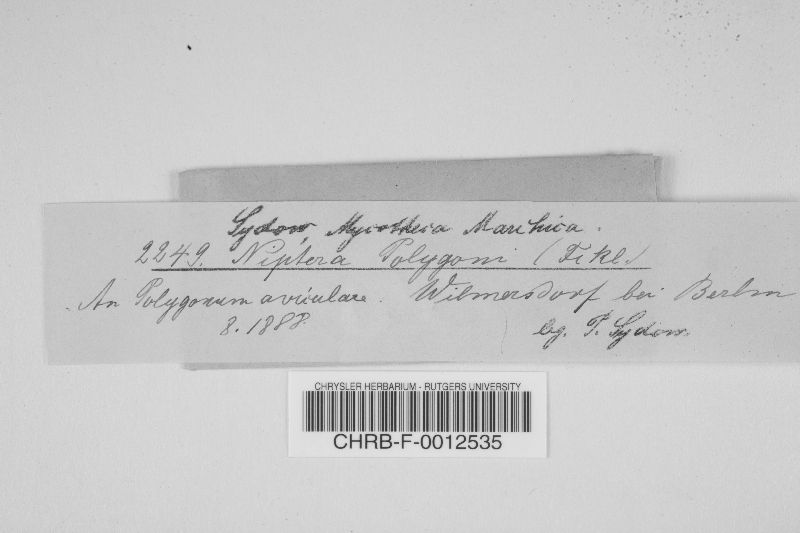 Sydow, Mycotheca Marchica.
2249. Niptera Polygoni (Fckl.)
An Polygonum aviculare. Wilmersdorf bei Berlin
8. 1888.
lg. P. Sydow.
CHRYSLER HERBARIUM - RUTGERS UNIVERSITY
CHRB-F-0012535